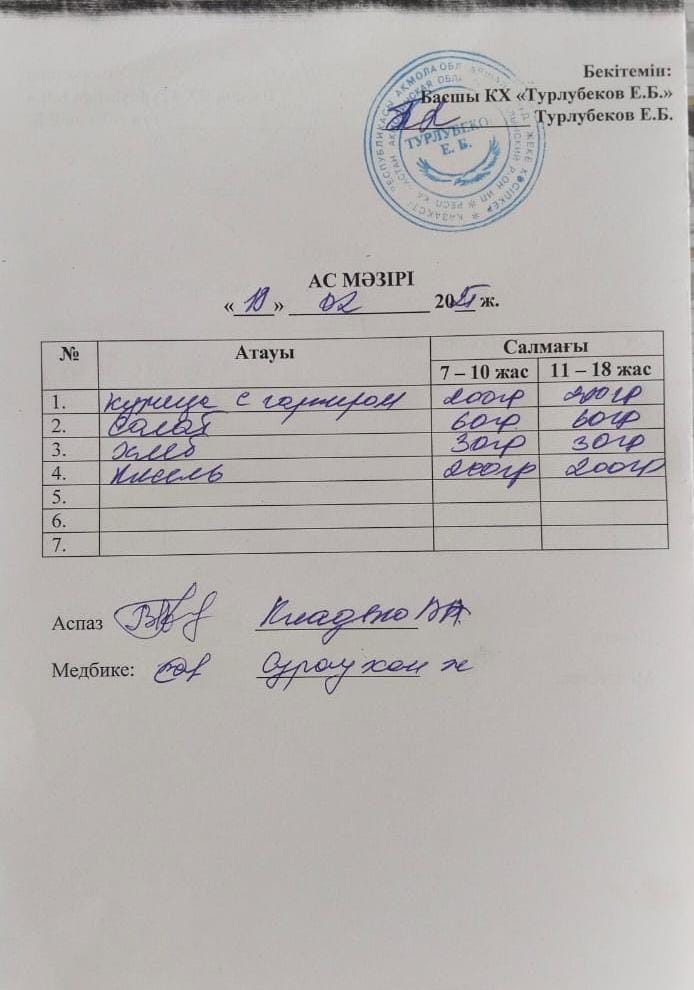 Бекітемін:
Басшы КХ «Турлубеков Е.Б.»
Турлубеков Е.Б.
ТУРЛУБЕКО
Е. Б.
АС МӘЗІРІ
«19» 02 20 ж.
№ Атауы Салмағы
7 – 10 жас 11 – 18 жас
1. курица с гарниром 200гр 200гр
2. Салат 60гр 60гр
3. хлеб 30гр 30гр
4. Кисель 200гр 200гр
5.
6.
7.
Аспаз
Медбике: